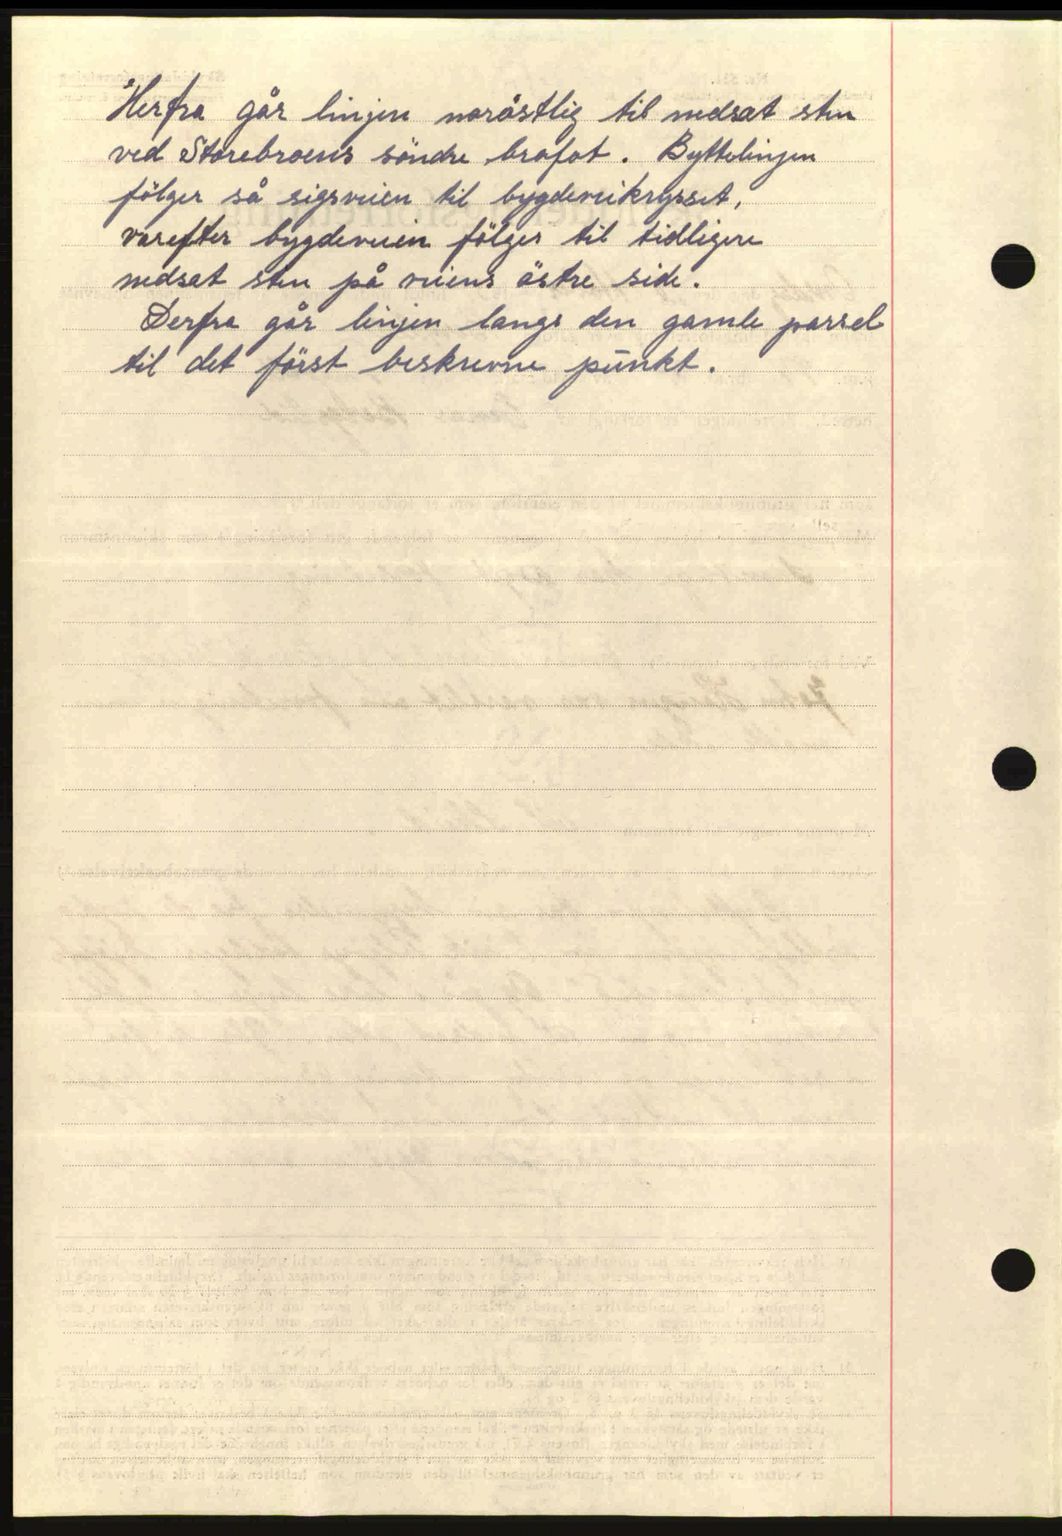 Herfra går linjen noröstlig til nedsat sten
ved Storebroens söndre brofot. Byttelinjen
fölger så sigsveien til bygdeveikrysset,
varefter bygdeveien fölger til tidligere
nedsat sten på veiens östre side.
Derfra går linjen langs den gamle parsel
til det först beskrevne punkt.